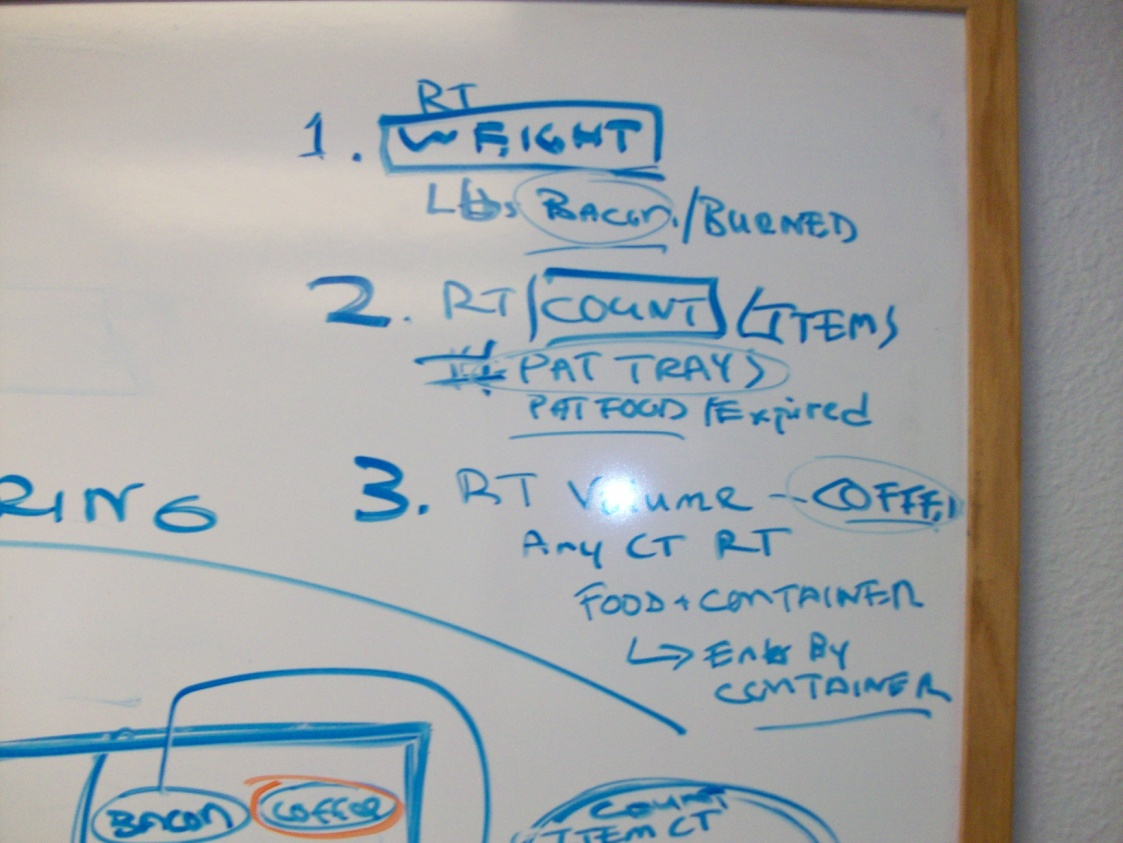 RT
1. WEIGHT
Lbs BACON / BURNED
2. RT / COUNT / ITEMS
# PAT TRAYS
PAT FOOD / Expired
3. RT Volume - COFFEE
Any CT RT
FOOD + CONTAINER
↳ By
CONTAINER
RING
BACON COFFEE
COUNT
ITEM CT